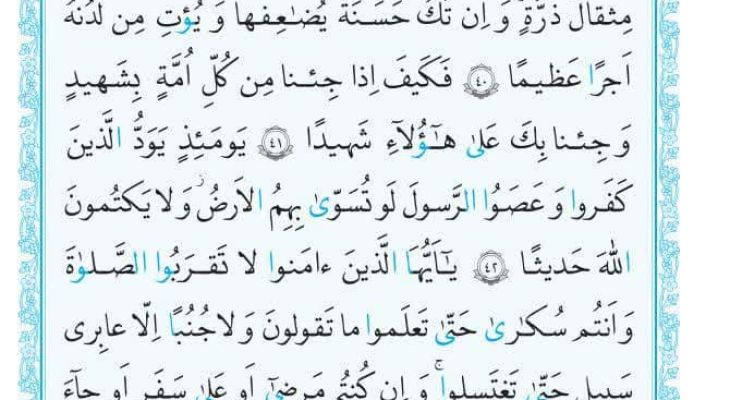 مِثقالَ ذَرَّةٍ وَ اِن تَكُ حَسَنَةً يُضاعِفها وَ يُؤتِ مِن لَدُنهُ
اَجرًا عَظيمًا ﴿٤٠﴾ فَكَيفَ اِذا جِئنا مِن كُلِّ اُمَّةٍ بِشَهيدٍ
وَ جِئنا بِكَ عَلىٰ هٰٓؤُلآءِ شَهيدًا ﴿٤١﴾ يَومَئِذٍ يَوَدُّ الَّذينَ
كَفَروا وَ عَصَوُا الرَّسولَ لَو تُسَوّىٰ بِهِمُ الاَرضُ وَ لا يَكتُمونَ
اللهَ حَديثًا ﴿٤٢﴾ يٰٓاَيُّهَا الَّذينَ ءامَنوا لا تَقرَبُوا الصَّلوٰةَ
وَ اَنتُم سُكارىٰ حَتّىٰ تَعلَموا ما تَقولونَ وَ لا جُنُبًا اِلّا عابِرى
سَبيلٍ حَتّىٰ تَغتَسِلواۚ وَ اِن كُنتُم مَرضىٰٓ اَو عَلىٰ سَفَرٍ اَو جآءَ